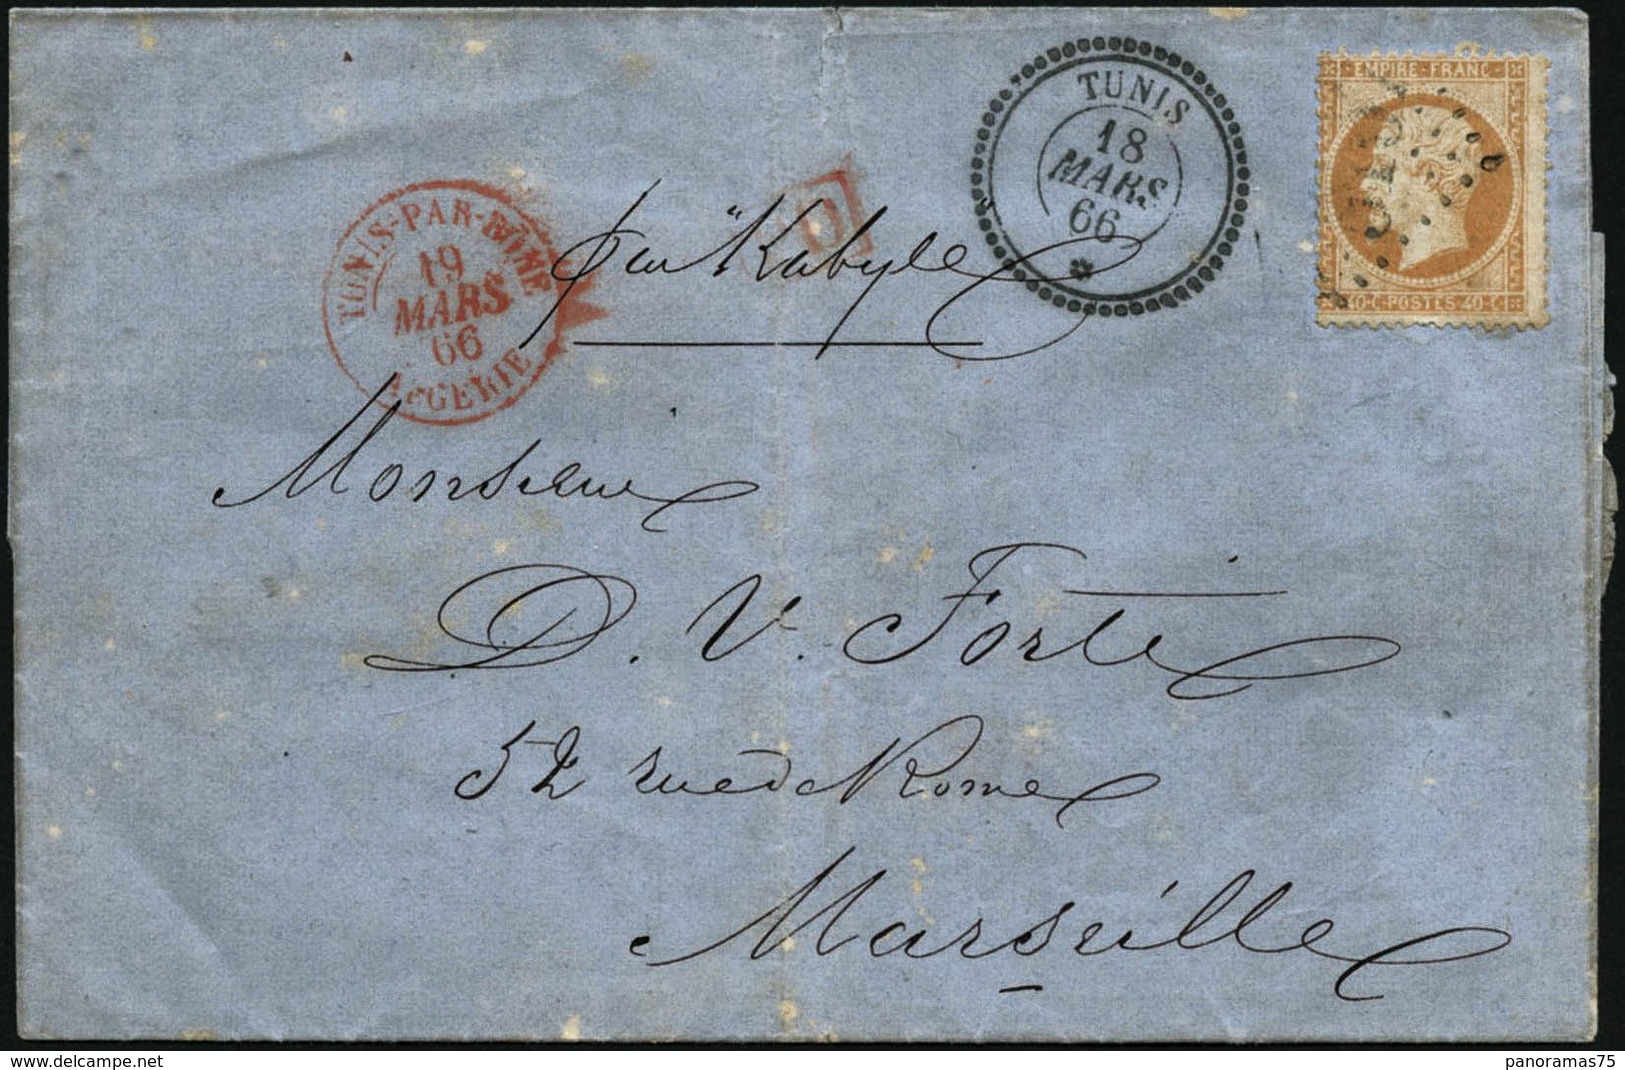 TUNIS
18
MARS
66
EMPIRE-FRANC-
40-C-POSTES-40-C
TUNIS-PAR-BÔNE
19
MARS
66
ALGERIE
PD
par "Kabyle"
Monsieur
D. V. Forti
52 rue de Rome
Marseille
www.delcampe.net
panoramas75